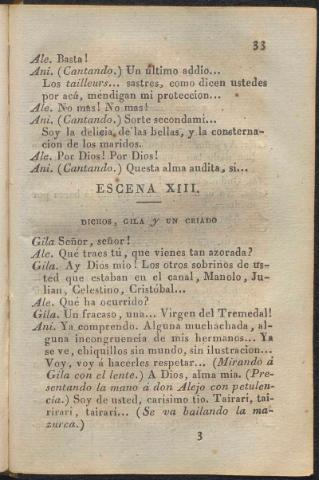 33
Ale. Basta!
Ani. (Cantando.) Un último addio...
Los tailleurs... sastres, como dicen ustedes
por acá, mendigan mi proteccion...
Ale. No mas! No mas!
Ani. (Cantando.) Sorte secondami...
Soy la delicia de las bellas, y la consterna-
cion de los maridos.
Ale. Por Dios! Por Dios!
Ani. (Cantando.) Questa alma audita, si...
ESCENA XIII.
DICHOS, GILA y UN CRIADO
Gila Señor, señor!
Ale. Qué traes tú, que vienes tan azorada?
Gila. Ay Dios mio! Los otros sobrinos de us-
ted que estaban en el canal, Manolo, Ju-
lian, Celestino, Cristóbal...
Ale. Qué ha ocurrido?
Gila. Un fracaso, una... Virgen del Tremedal!
Ani. Ya comprendo. Alguna muchachada, al-
guna incongruencia de mis hermanos... Ya
se ve, chiquillos sin mundo, sin ilustracion...
Voy, voy á hacerles respetar... (Mirando á
Gila con el lente.) A Dios, alma mia. (Pre-
sentando la mano á don Alejo con petulen-
cia.) Soy de usted, carisimo tio. Tairarí, tai-
rirari, tairari... (Se va bailando la ma-
zurca.)
3